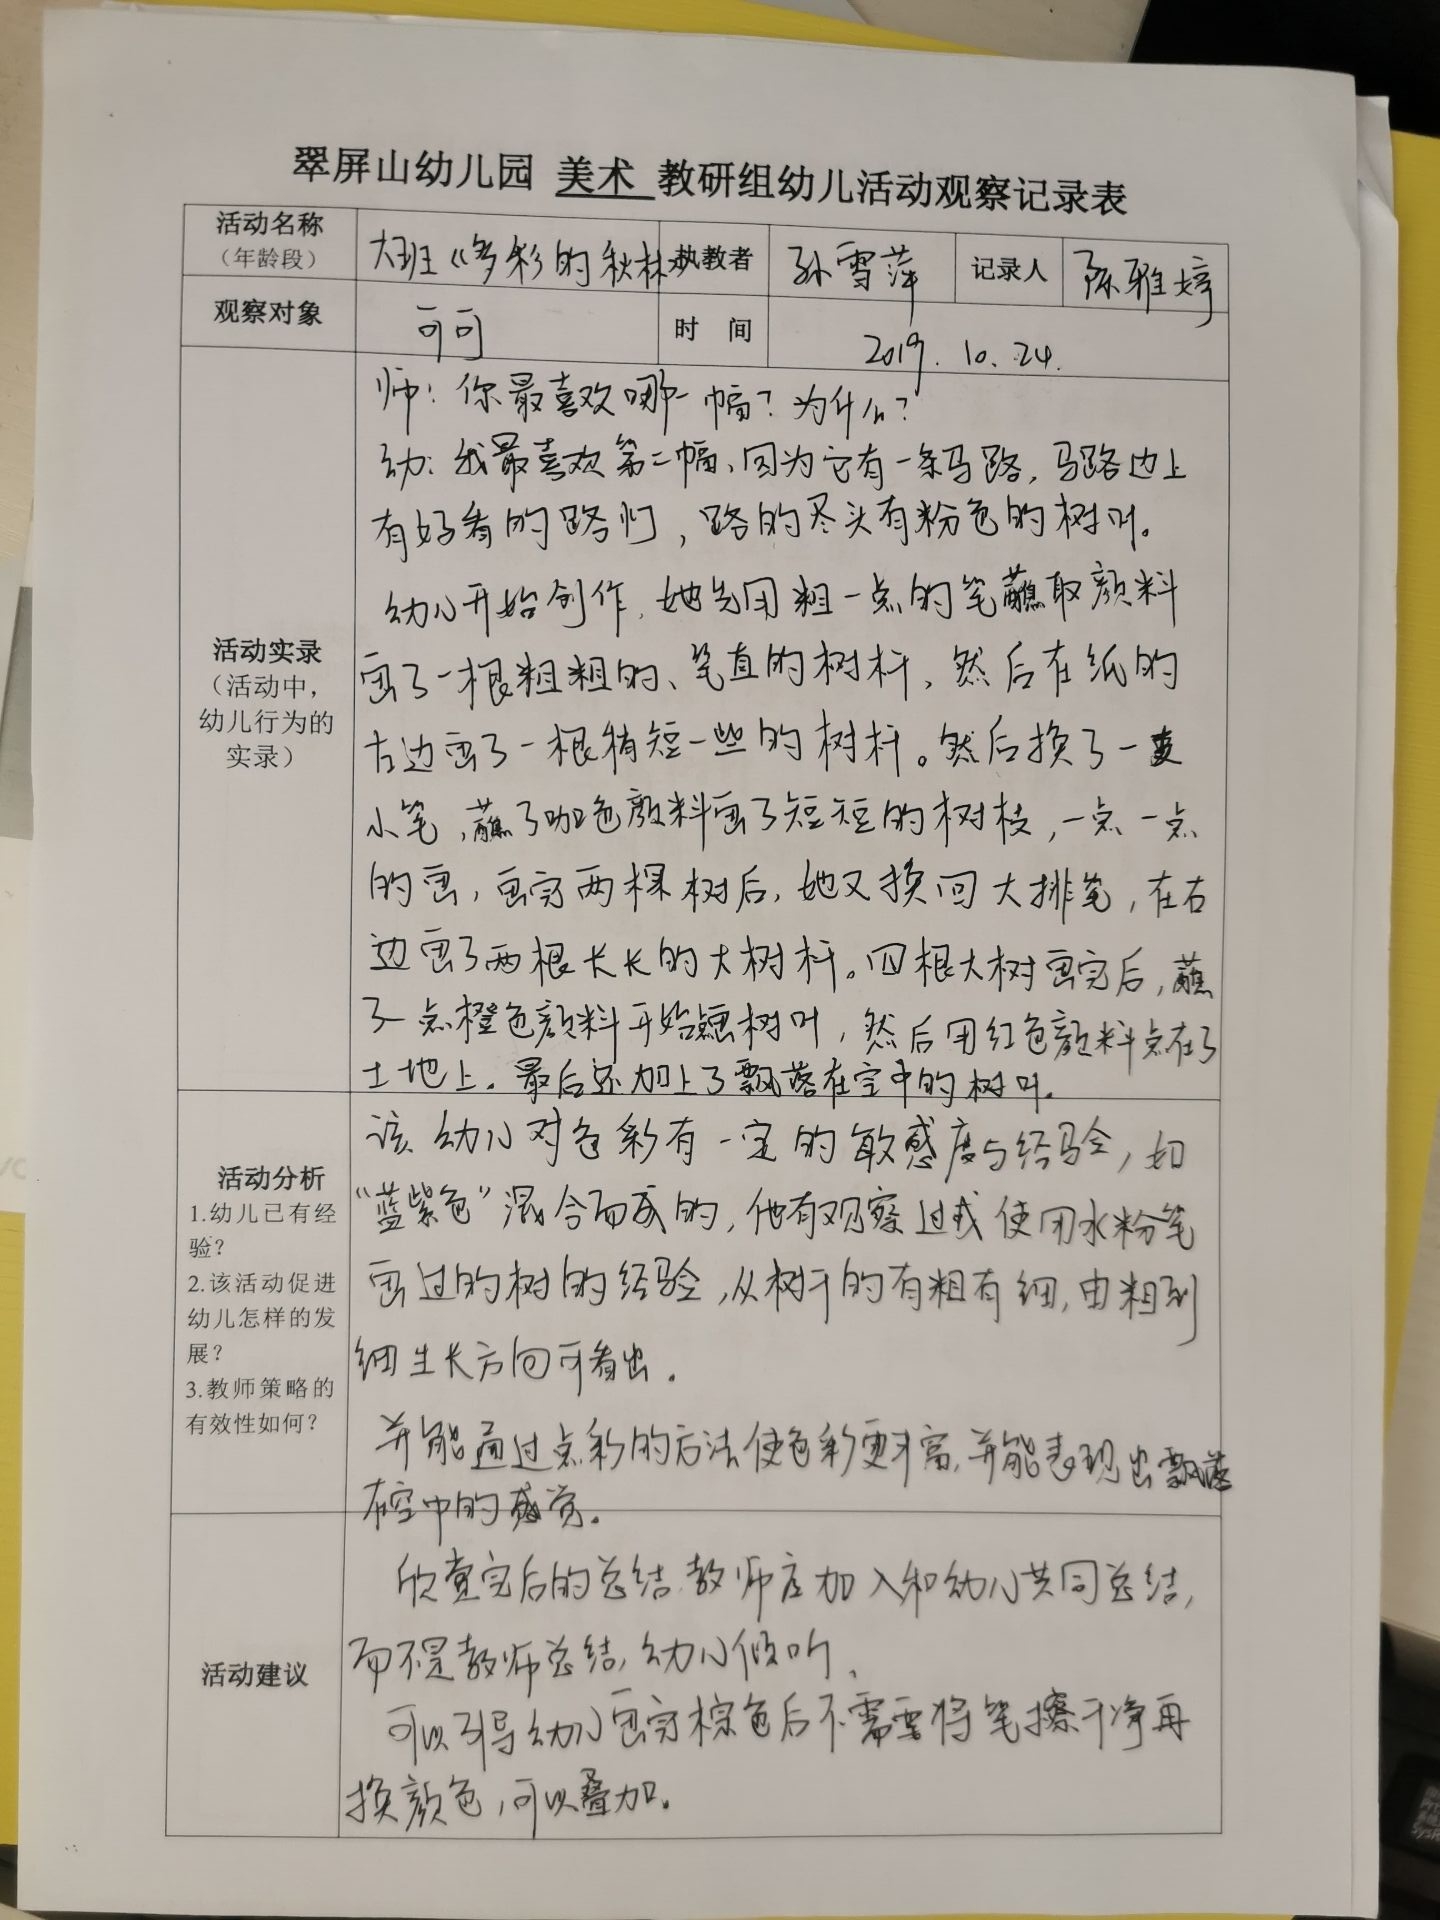 翠屏山幼儿园 美术 教研组幼儿活动观察记录表
活动名称
（年龄段）
大班《多彩的秋林》
执教者
孙雪萍
记录人
陈雅婷
观察对象
可可
时 间
2019. 10. 24.
活动实录
（活动中，
幼儿行为的
实录）
师：你最喜欢哪一幅？为什么？
幼：我最喜欢第二幅、因为它有一条马路，马路边上
有好看的路灯，路的尽头有粉色的树叶。
幼儿开始创作，她先用粗一点的笔蘸取颜料
画了一根粗粗的、笔直的树杆，然后在纸的
左边画了一根稍短一些的树杆。然后换了一支
小笔，蘸了咖色颜料画了短短的树枝，一点一点
的画，画完两棵树后，她又换回大排笔，在右
边画了两根长长的大树杆。四根大树画完后，蘸
了一点橙色颜料开始点画树叶，然后用红色颜料点在了
土地上。最后还加上了飘落在空中的树叶。
活动分析
1.幼儿已有经
验？
2.该活动促进
幼儿怎样的发
展？
3.教师策略的
有效性如何？
该幼儿对色彩有一定的敏感度与经验，如
“蓝紫色”混合而成的，他有观察过或使用水粉笔
画过的树的经验，从树干的有粗有细，由粗到
细生长方向可看出。
并能通过点彩的方法使色彩更丰富，并能表现出飘落
在空中的感觉。
活动建议
欣赏完后的总结，教师应加入和幼儿共同总结，
而不是教师总结，幼儿倾听。
可以引导幼儿画完棕色后不需要将笔擦干净再
换颜色，可以叠加。